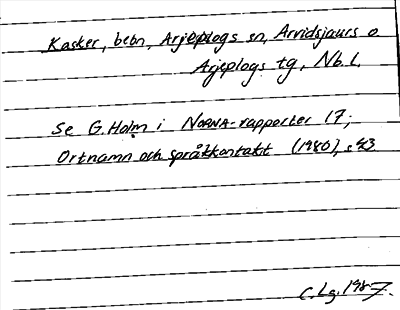 Kasker, bebn, Arjeplogs sn, Arvidsjaurs o.
Arjeplogs tg, Nb.l.
Se G. Holm i NORNA-rapporter 17;
Ortnamn och språkkontakt (1980), s 43
C. Lg. 1987.